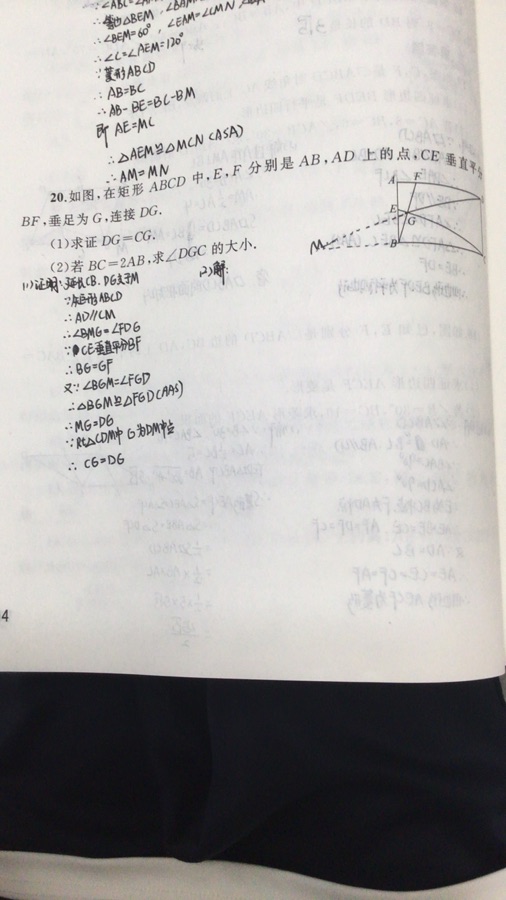 ∴∠BEM=60°, ∠EAM=∠CMN
∴∠C=∠AEM=120°
∵菱形ABCD
∴AB=BC
∴AB-BE=BC-BM
即 AE=MC
∴△AEM≌△MCN (ASA)
∴AM=MN
20.如图,在矩形 ABCD 中,E,F 分别是 AB,AD 上的点,CE 垂直平分
BF,垂足为 G,连接 DG.
(1)求证 DG=CG.
(2)若 BC=2AB,求∠DGC 的大小.
A F
E G
M B
(1)证明:延长CB、DG交于M
∵矩形ABCD
∴AD∥CM
∴∠BMG=∠FDG
∵CE垂直平分BF
∴BG=GF
又∵∠BGM=∠FGD
∴△BGM≌△FGD(AAS)
∴MG=DG
∵Rt△CDM中 G为DM中点
∴CG=DG
(2)解:
4